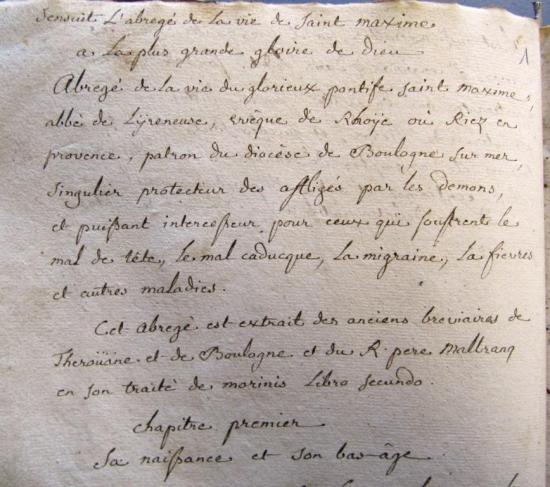 Sensuit L'abregé de la vie de Saint maxime
a la plus grande gloire de dieu
1
Abregé de la vie du glorieux pontife saint maxime,
abbé de Lÿreneuse, evêque de Rhoÿe ou Riez en
provence, patron du diocèse de Boulogne sur mer,
singulier protecteur des affligés par les demons,
et puissant intercesseur pour ceux qui souffrent le
mal de tête, le mal caducque, la migraine, la fievres
et autres maladies.
Cet Abregé est extrait des anciens breviaires de
Theroüane et de Boulogne et du R. pere Malbranq
en son traité de morinis Libro secundo.
chapitre premier
Sa naissance et son bas-âge